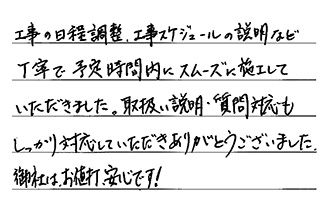 工事の日程調整、工事スケジュールの説明など
丁寧で予定時間内にスムーズに施工して
いただきました。取扱い説明・質問対応も
しっかり対応していただきありがとうございました。
御社は、お値打、安心です!